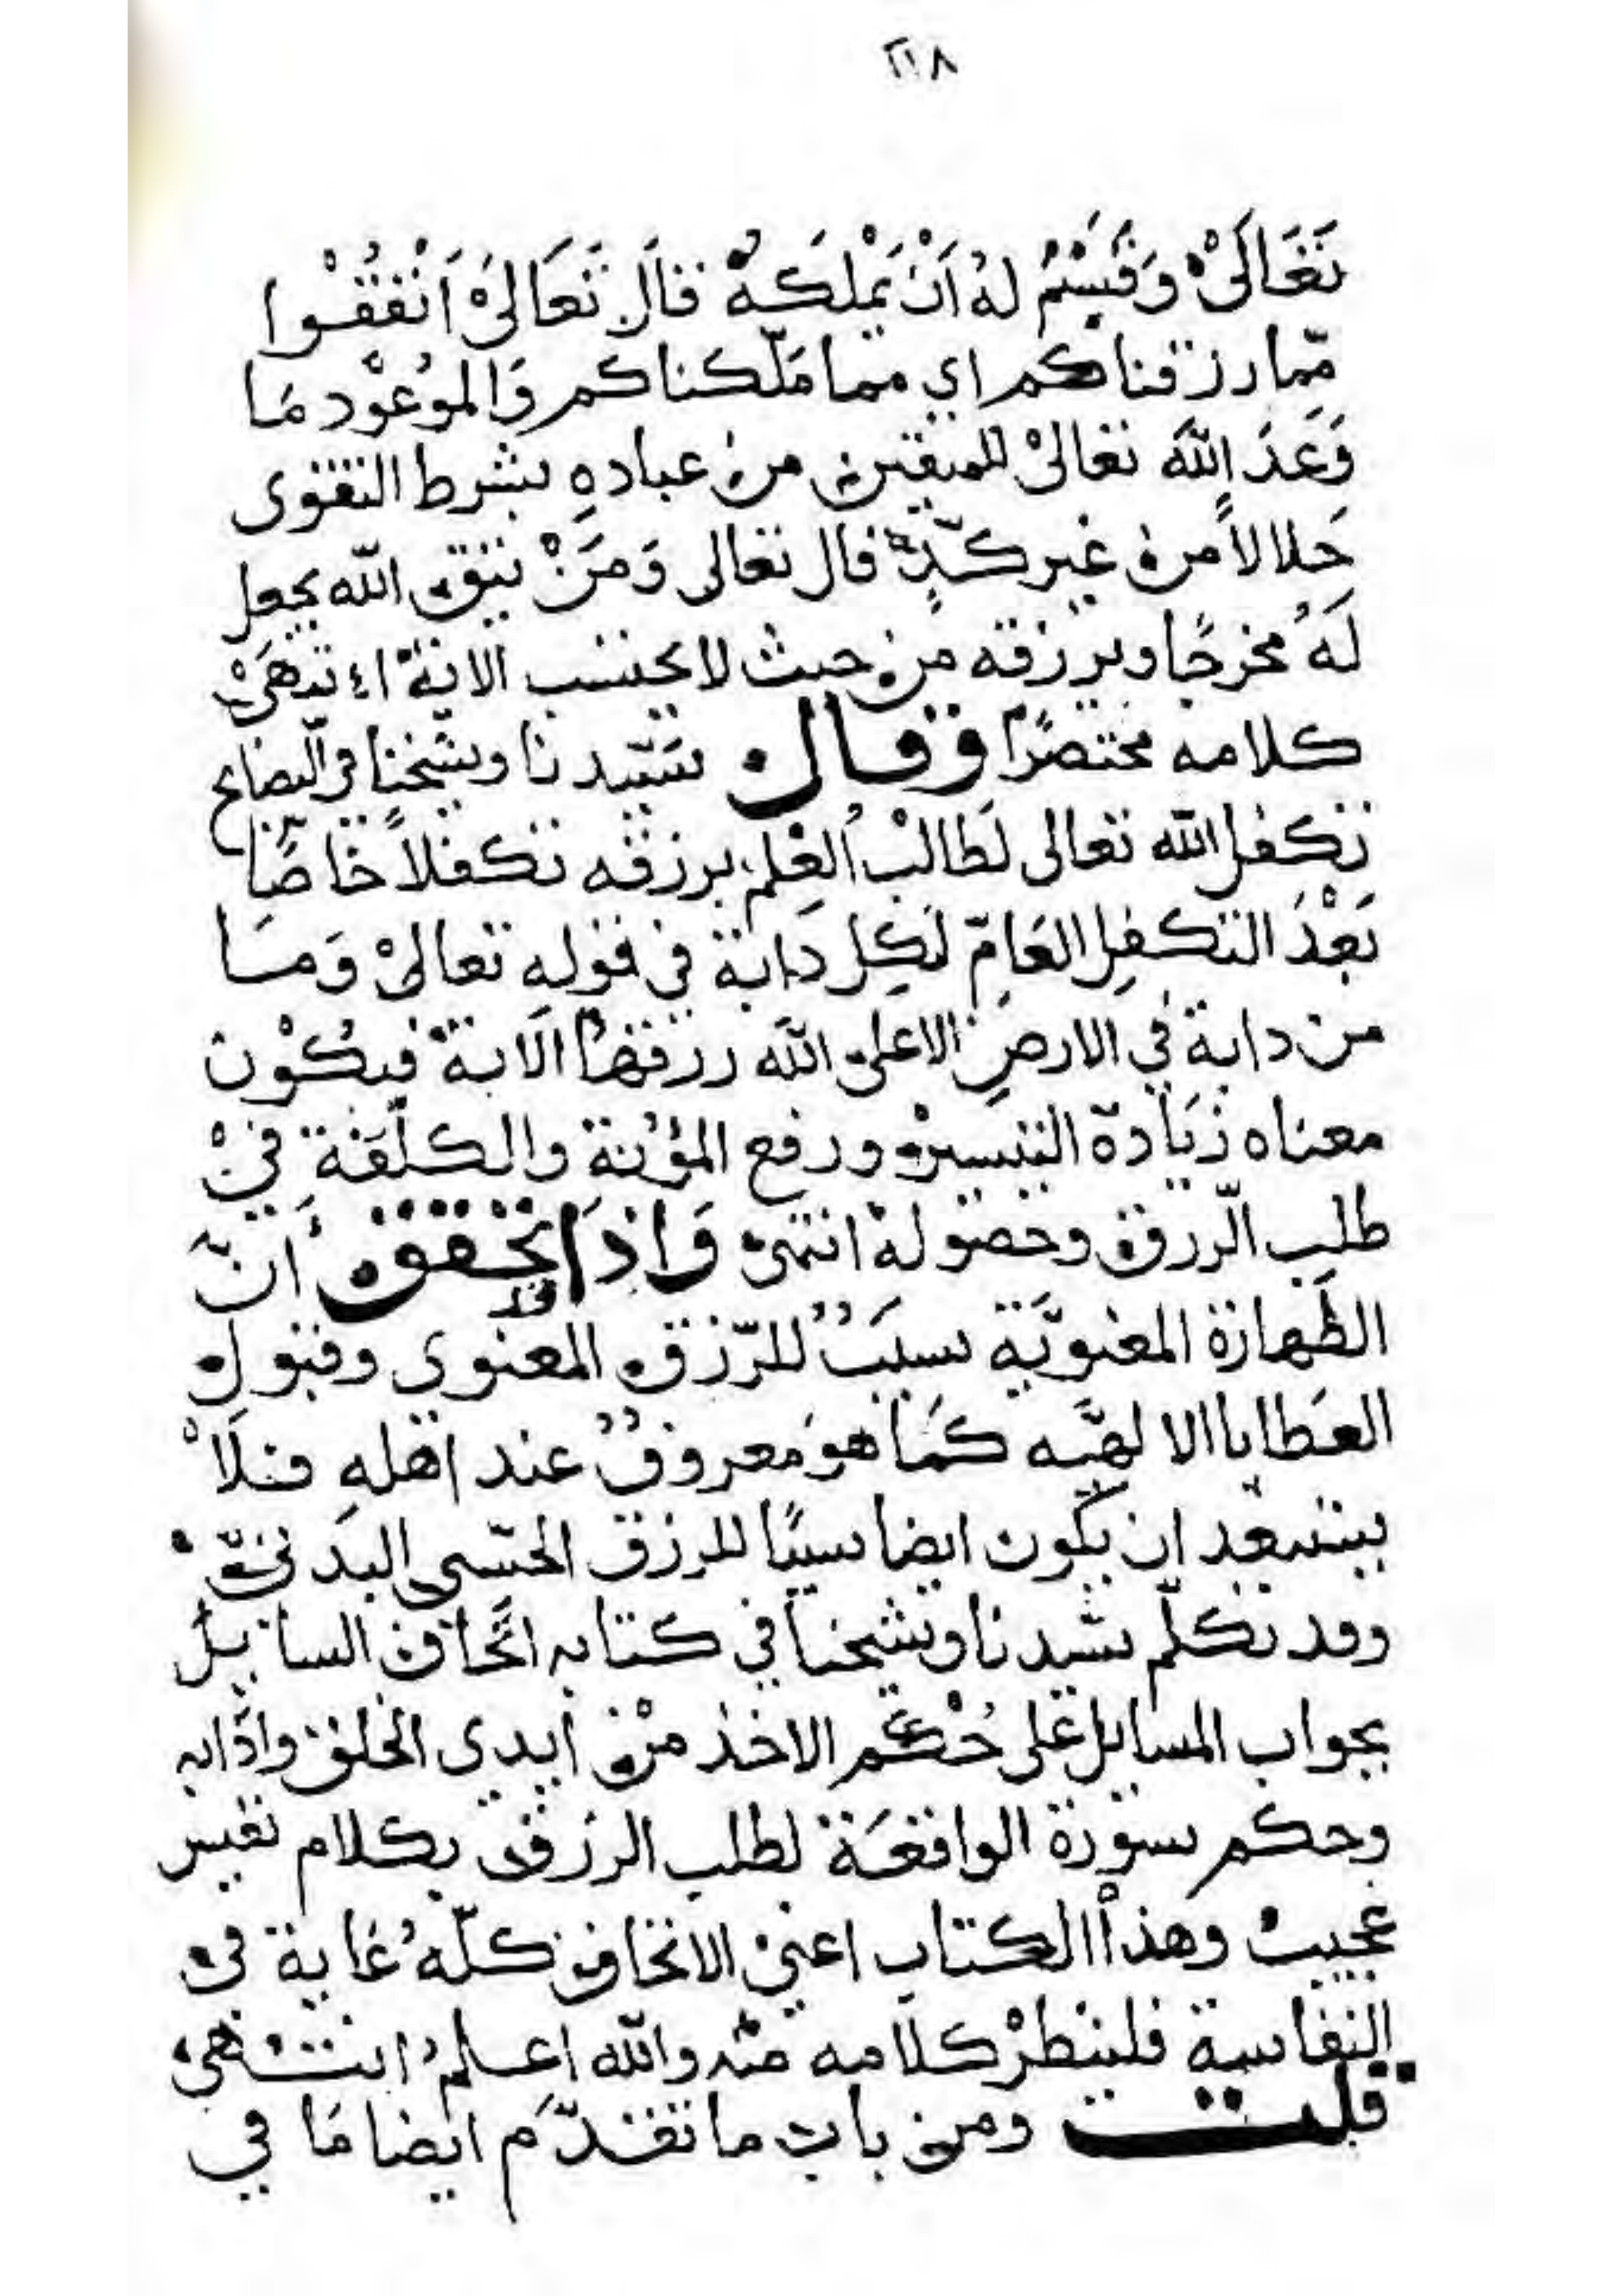 ٢١٨
تَعَالَىْ وَقَسَمَ لهُ اَنْ يَمْلكَهُ فقَالَ تَعَالىَ اَنْفقُوْا
مّما رزقناكم اي مما مَلّكناكم وَالموُعوْد مَا
وَعَدَ اللهَ تعالىْ للمتقين من عباده بشرط التقوى
حَلالاً من غير كَدٍّ قال تعالى وَمَنْ يتق الله يجعل
لَهُ مخرجًا ويرزقه من حيث لا يحتسب الاية اء نتهَىْ
كلامه مختصرًا وقال سَيّدنا وشيخنا في النصايح
تكفل الله تعالى لطَالبْ العِلم برزقه تكفلاً خاصًّا
بَعْدَ التكفلِ العَامّ لكِل دَابة في قوله تعالىْ وَمَا
من دابة في الارضِ الا على الله رزقهَا الاية فيكُوْن
معناه زيَادة التيسير ورفع المؤنة والكلفَة فيْ
طلب الرزق وحصُولهْ انتهى وَاذَا تحقق قد أنّ
الطَهارَة المعنويَّة سبَبٌ للرّزق المعنوي وقبول
العَطايا الالهيَّه كمَا هوَ معروفٌ عند اهلهِ فلَا
يستبعد ان يكون ايضا سببًا للرزق الحسّى البدَنيّ
وقد تكلّم سَيدنا وشيخنا في كتابه اتحَاف السايل
بجواب المسايل على حُكم الاخذ منْ أيدي الخلق وادَابه
وحكم سورة الواقعَة لطلب الرزق بكلام نفيس
عجيبٌ وهذا الكتاب اعنيْ الاتحاف كلّهُ غاية في
النفاسة فلينظرْ كلامه منْه والله اعلمُ انتهى
قلت ومن باب ما تقدّم ايضا مَا في